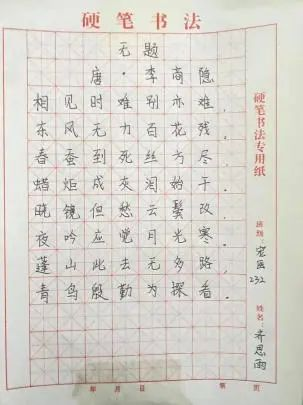 硬笔书法
无题
唐·李商隐
相见时难别亦难，
东风无力百花残。
春蚕到死丝方尽，
蜡炬成灰泪始干。
晓镜但愁云鬓改，
夜吟应觉月光寒。
蓬山此去无多路，
青鸟殷勤为探看。
硬笔书法专用纸
班级
宏医
232
姓名
齐思雨
年 月 日 第 页